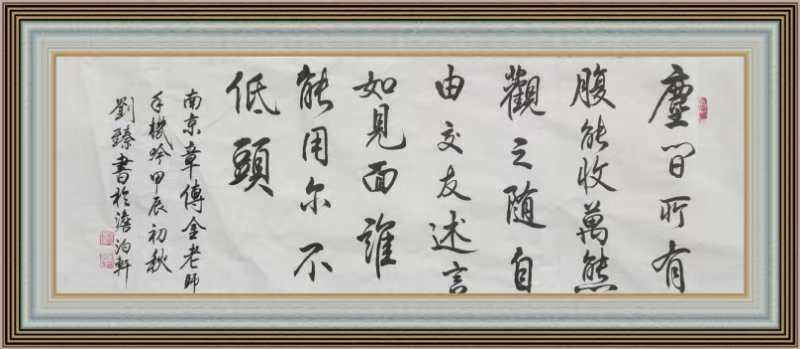 塵間所有
腹能收萬態
觀之随自
由交友述言
如見面誰
能用尔不
低頭
南京章傅金老師
手機吟甲辰初秋
劉臻書於澹泊軒